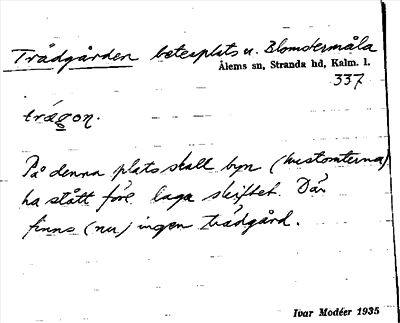 Trädgården betesplats u. Blomstermåla
Ålems sn, Stranda hd, Kalm. l.
337
trägon.
På denna plats skall byn (hustomterna)
ha stått före laga skiftet. Där
finns (nu) ingen trädgård.
Ivar Modéer 1935